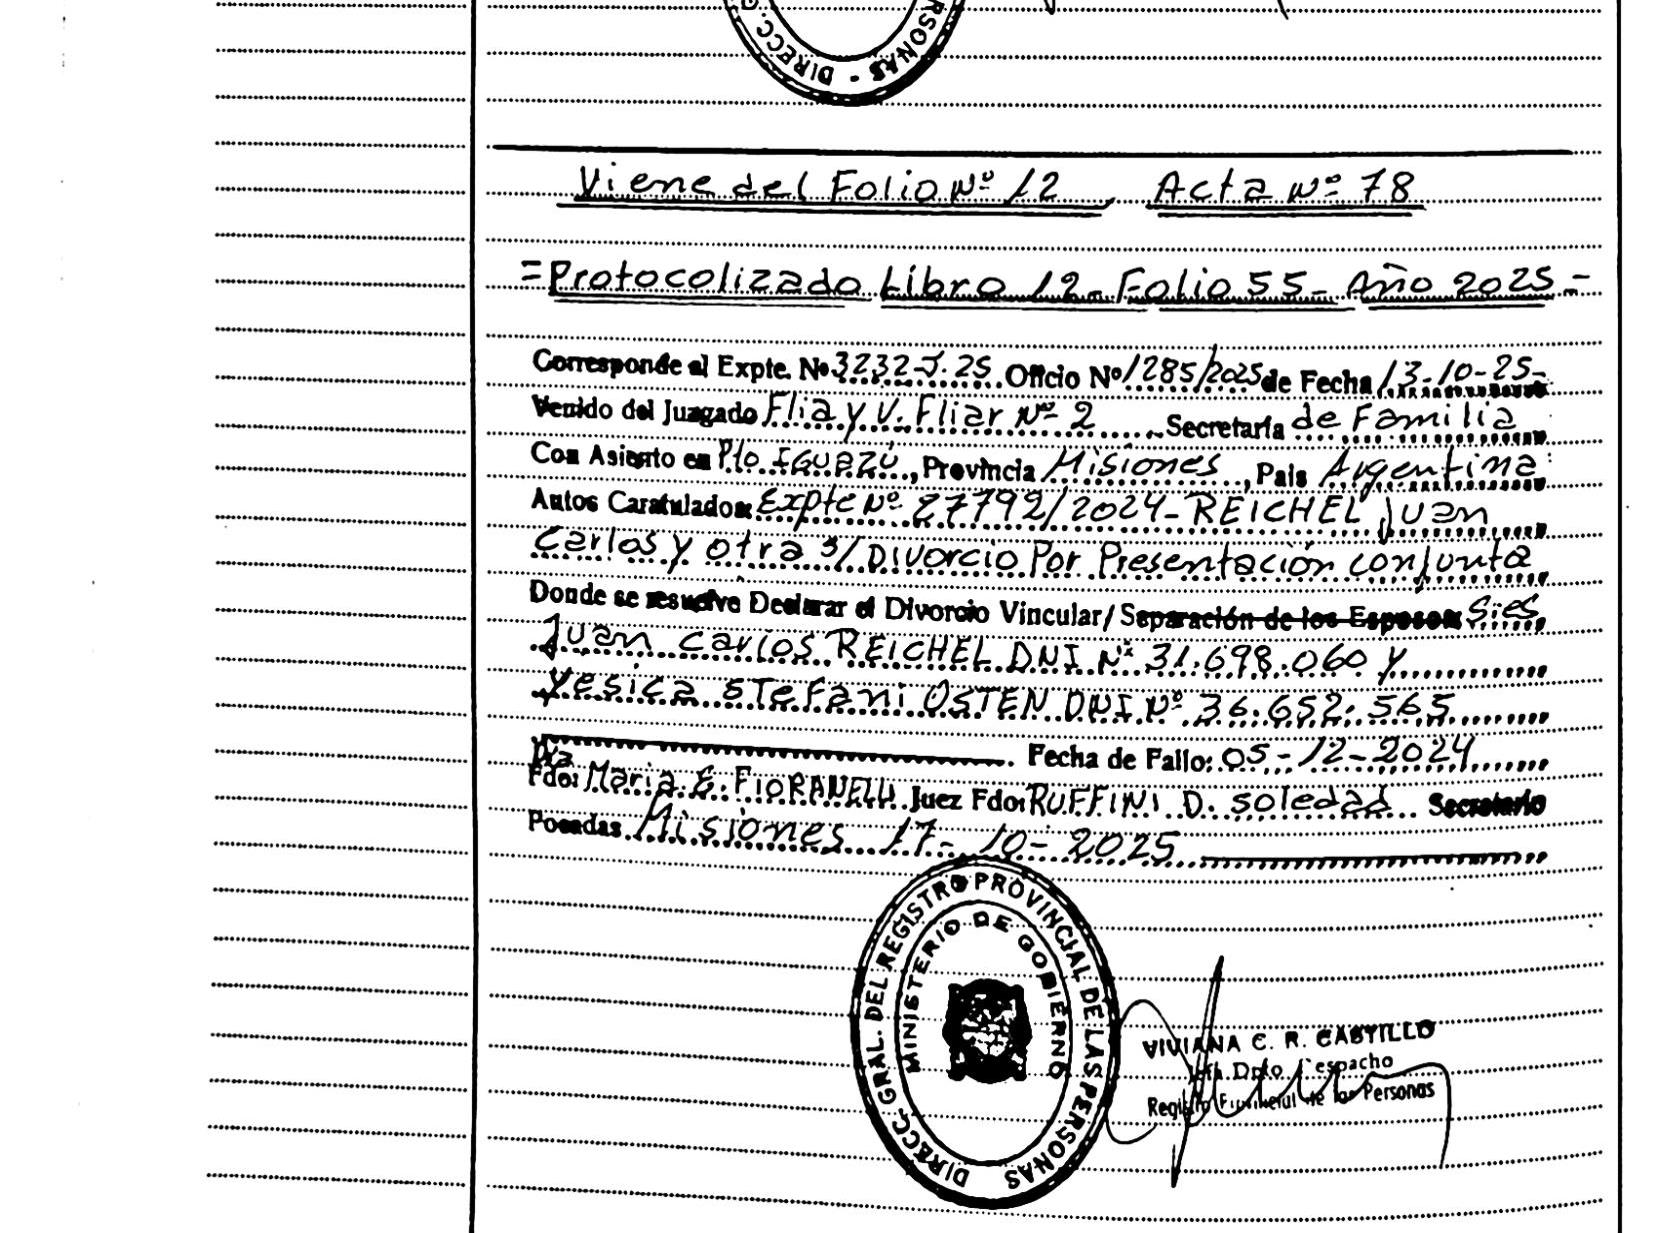 DIRECC. G
RSONAS -
Viene del Folio Nº 12 Acta Nº 78
= Protocolizado Libro 12 - Folio 55 - Año 2025 -
Corresponde al Expte. Nº 3232-J-25 Oficio Nº 1285/2025 de Fecha 13-10-25-
Venido del Juzgado Flia y V. Fliar Nº 2 Secretaría de Familia
Con Asiento en Pto IGUAZÚ, Provincia Misiones, País Argentina
Autos Caratulados: Expte Nº 27792/2024 - REICHEL Juan
Carlos y otra s/ Divorcio Por Presentación conjunta
Donde se resuelve Declarar el Divorcio Vincular/ Separación de los Esposos: S.es
Juan Carlos REICHEL DNI Nº 31.698.060 y
Yesica STefani OSTEN DNI Nº 36.652.565
Fecha de Fallo: 05-12-2024
Dra
Fdo: Maria E. FIORANELLI Juez Fdo: RUFFINI D. Soledad Secretario
Posadas Misiones 17-10-2025
DIRECC. GRAL. DEL REGISTRO PROVINCIAL DE LAS PERSONAS
MINISTERIO DE GOBIERNO
VIVIANA C. R. CASTILLO
Jefa Dpto Despacho
Registro Provincial de las Personas